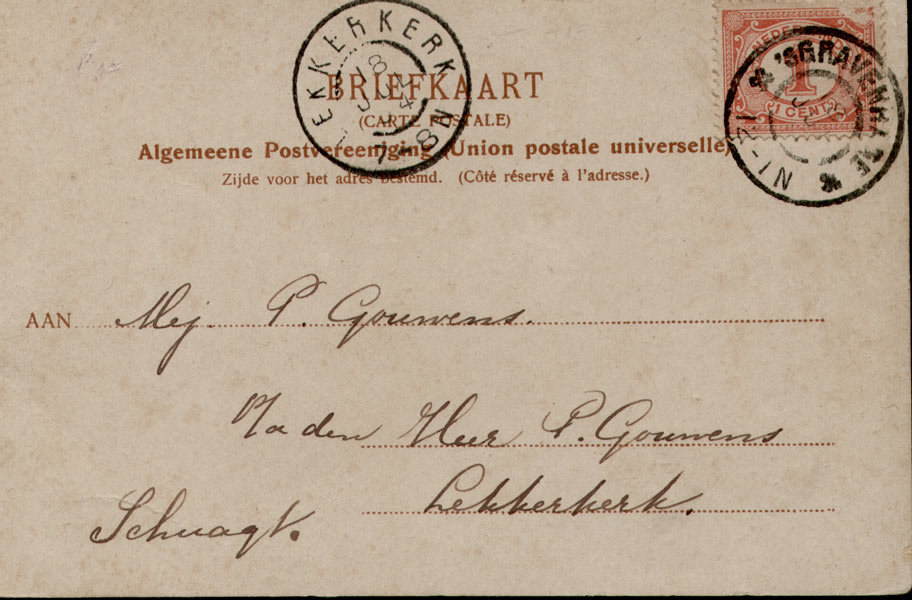 LEKKERKERK
7-8V
BRIEFKAART
(CARTE POSTALE)
Algemeene Postvereeniging (Union postale universelle)
Zijde voor het adres bestemd. (Côté réservé à l'adresse.)
NEDERLAND
1
1 CENT
'SGRAVENHAGE
AAN Mej. P. Gouwens.
den Heer P. Gouwens
Lekkerkerk.